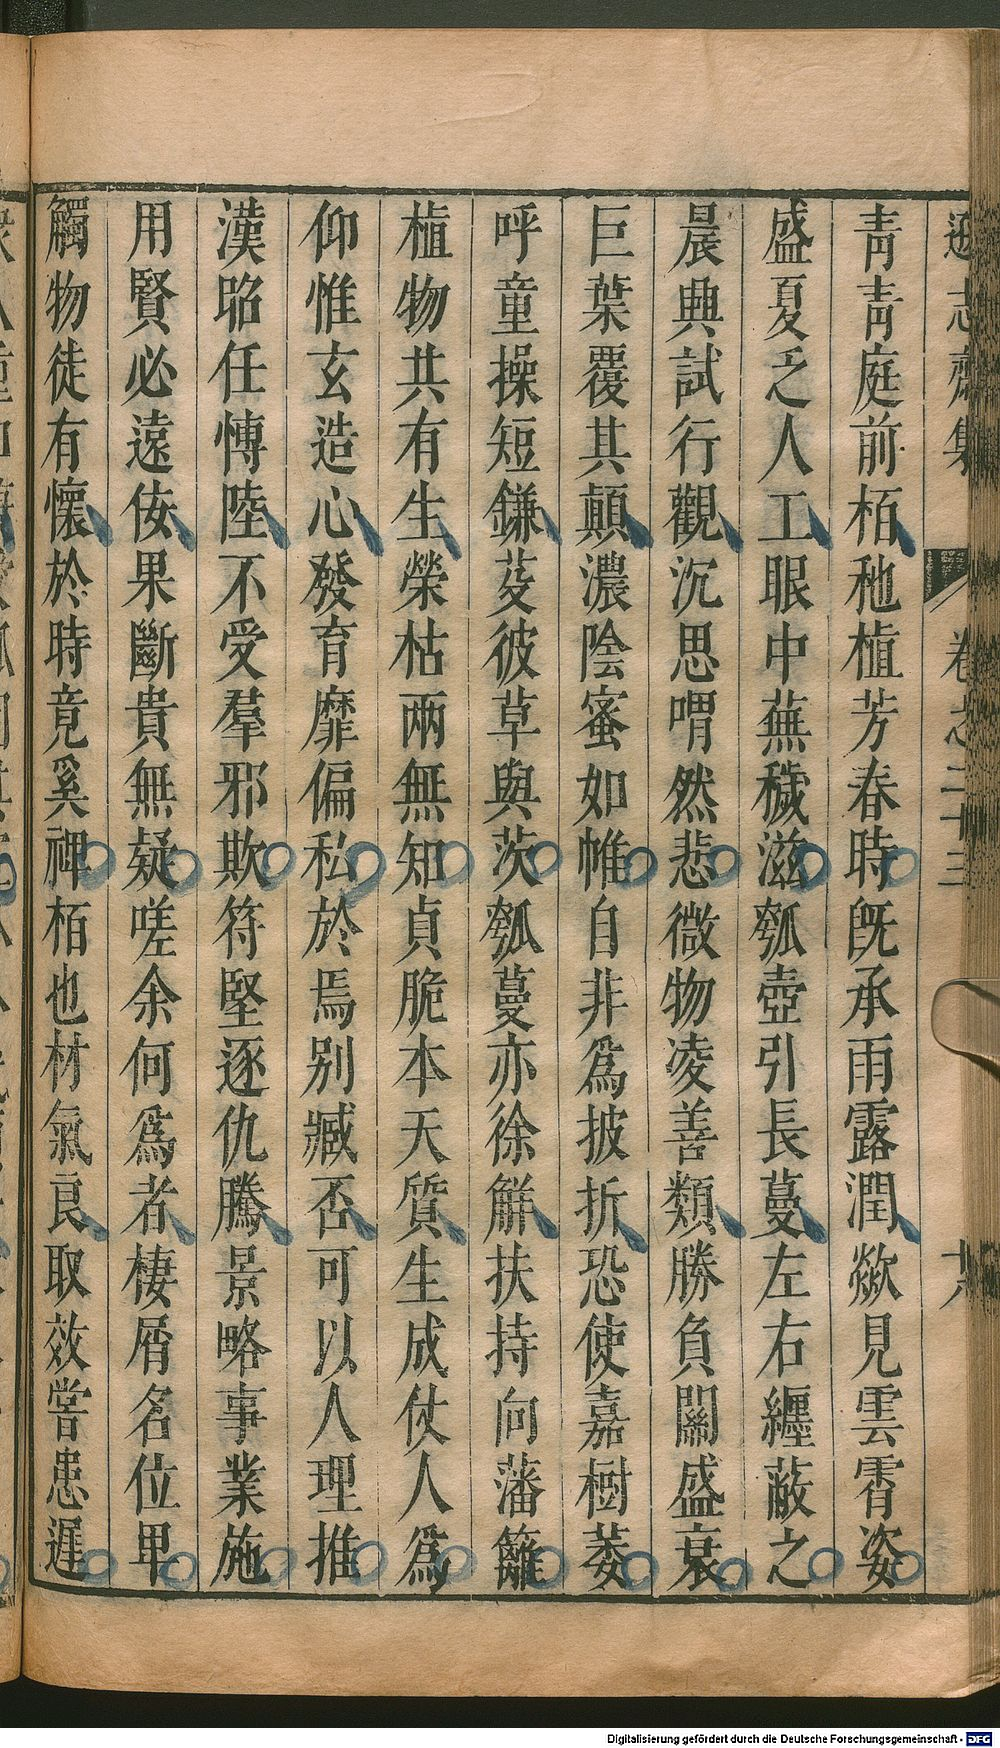 遜志齋集 卷之二十三 十八
青青庭前栢種植芳春時既承雨露潤歘見雲霄姿
盛夏乏人工眼中蕪穢滋瓠壺引長蔓左右纏蔽之
晨興試行觀沉思喟然悲微物凌善類勝負關盛衰
巨葉覆其顛濃陰蜜如帷自非爲披折恐使嘉樹萎
呼童操短鎌芟彼草與茨瓠蔓亦徐解扶持向藩籬
植物共有生榮枯兩無知貞脆本天質生成仗人爲
仰惟玄造心發育靡偏私於焉别臧否可以人理推
漢昭任博陸不受羣邪欺符堅逐仇騰景略事業施
用賢必遠佞果斷貴無疑嗟余何爲者棲屑名位卑
觸物徒有懷於時竟奚裨栢也材氣良取效嘗患遲
Digitalisierung gefördert durch die Deutsche Forschungsgemeinschaft - DFG